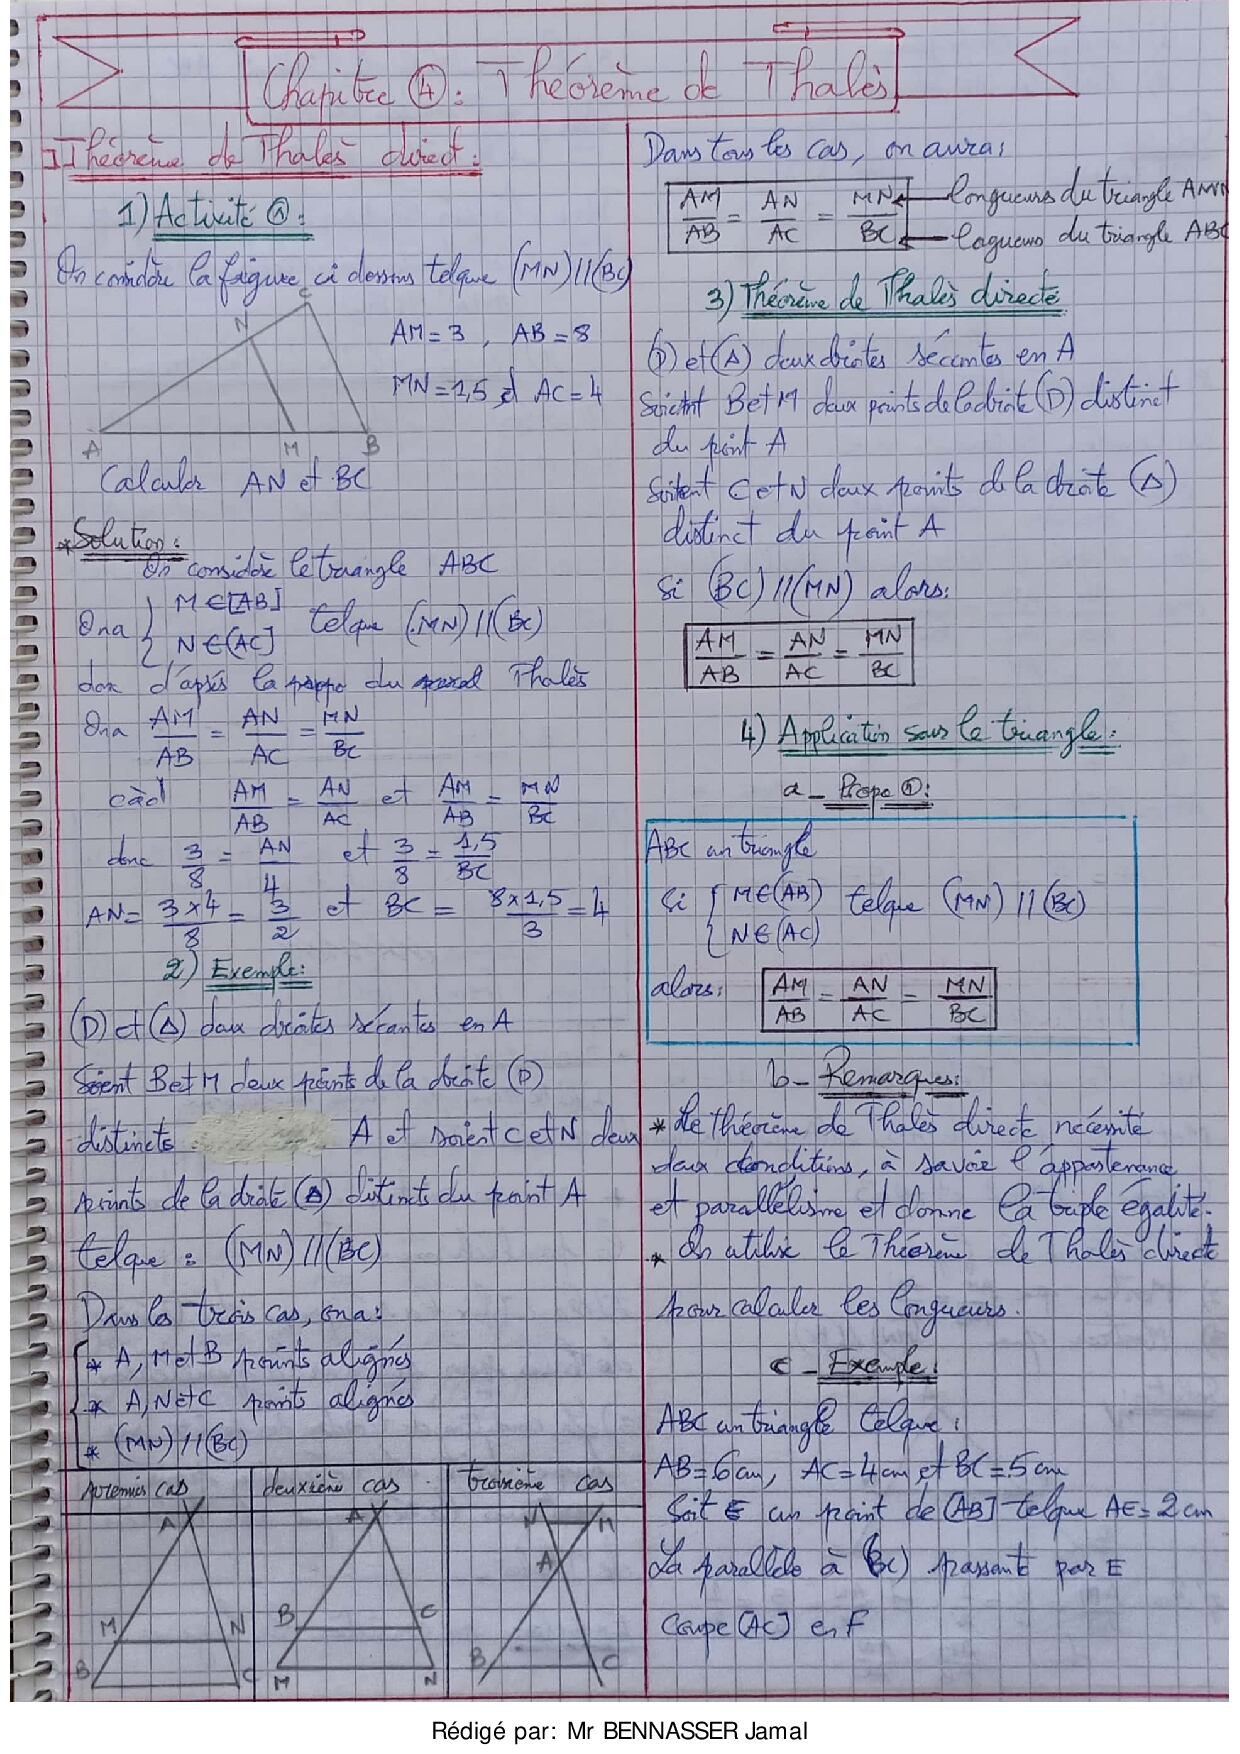 Chapitre ④: Théorème de Thalès
I-Théorème de Thalès direct:
1) Activité ①:
On considère la figure ci dessous telque (MN)//(BC)
C
N
AM=3 , AB=8
MN=1,5 et AC=4
A M B
Calculer AN et BC
*Solution:
On considère le traangle ABC
Ona { M∈[AB]
N∈[AC] telque (MN)//(BC)
donc d'après la propo du Thalès
Ona AM/AB = AN/AC = MN/BC
càd AM/AB = AN/AC et AM/AB = MN/BC
donc 3/8 = AN/4 et 3/8 = 1,5/BC
AN= 3×4/8 = 3/2 et BC = 8×1,5/3 = 4
2) Exemple:
(D) et (Δ) deux droites sécantes en A
Soient B et M deux points de la droite (D)
distincts A et soient C et N deux
points de la droite (Δ) distincts du point A
telque : (MN)//(BC)
Dans les trois cas, on a:
* A, M et B points alignés
* A, N et C points alignés
* (MN)//(BC)
premier cas deuxième cas troisième cas
A A N M
A
M N B C
B C M N B C
Dans tous les cas, on aura:
AM/AB = AN/AC = MN/BC
longueurs du triangle AMN
logueurs du triangle ABC
3) Théorème de Thalès directe
(D) et (Δ) deux droites sécantes en A
Soient B et M deux points de la droite (D) distinct
du point A
Soitent C et N deux points de la droite (Δ)
distinct du point A
Si (BC)//(MN) alors:
AM/AB = AN/AC = MN/BC
4) Application sous le triangle:
a - Propo ①:
ABC un triangle
Si { M∈(AB)
N∈(AC) telque (MN)//(BC)
alors: AM/AB = AN/AC = MN/BC
b- Remarques:
* Le théorème de Thalès directe nécessité
deux conditions, à savoir l'appartenance
et parallélisme et donne la triple égalité.
* On utilise le Théorème de Thalès directe
pour calculer les longueurs.
c - Exemple:
ABC un triangle telque:
AB=6cm, AC=4cm et BC=5cm
Soit E un point de [AB] telque AE=2cm
La parallèle à (BC) passant par E
Coupe [AC] en F
Rédigé par: Mr BENNASSER Jamal